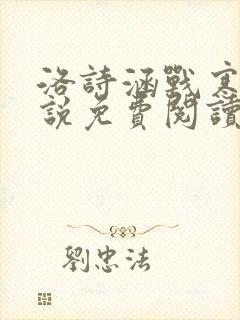 洛詩涵戰寒
說免費閱讀
劉忠法